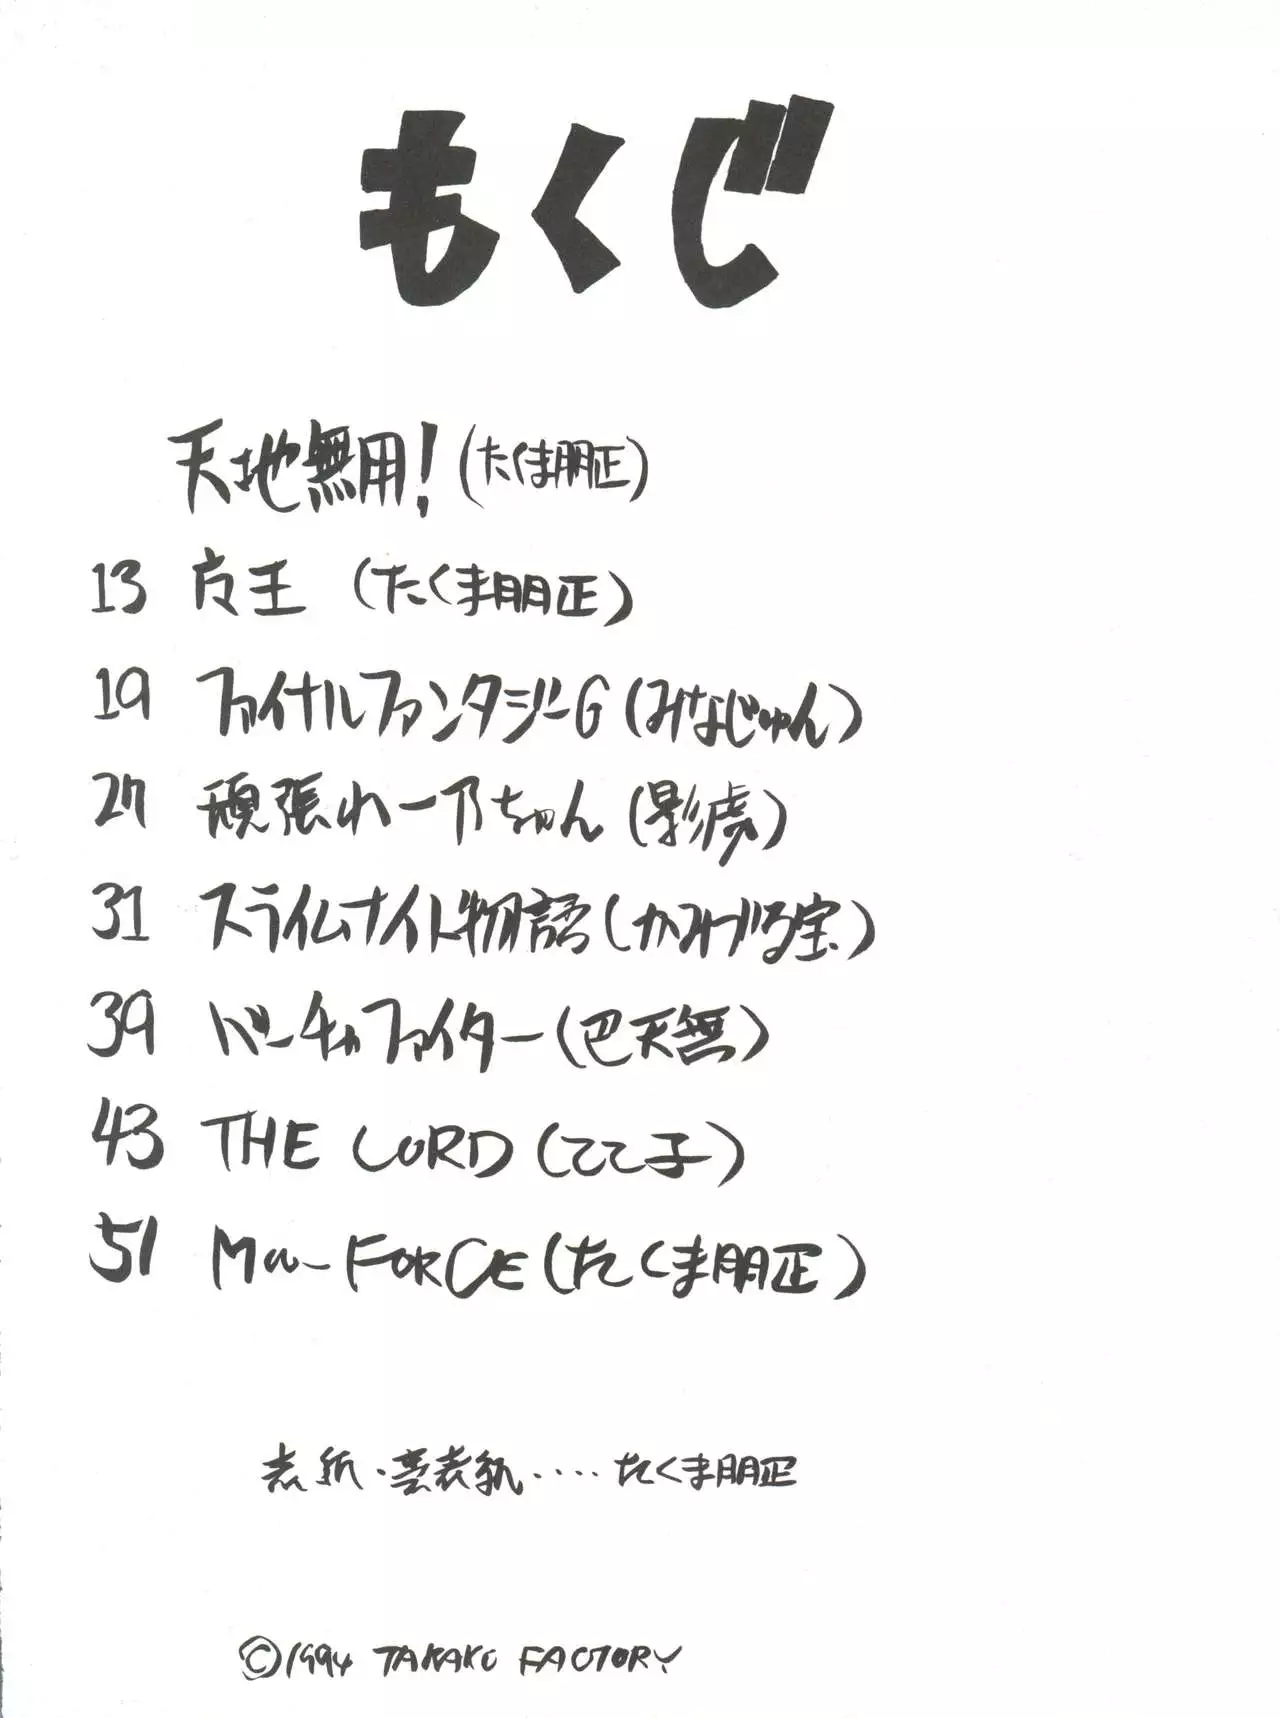 もくじ
天地無用!(たくま朋正)
13 女王 (たくま朋正)
19 ファイナルファンタジーG(みなじゅん)
27 頑張れ一乃ちゃん(影虎)
31 スライムナイト物語(かみづる宝)
39 バーチャファイター(巴天無)
43 THE LORD(てて子)
51 Mu-FORCE(たくま朋正)
表紙・裏表紙・・・・たくま朋正
©1994 TAKAKO FACTORY